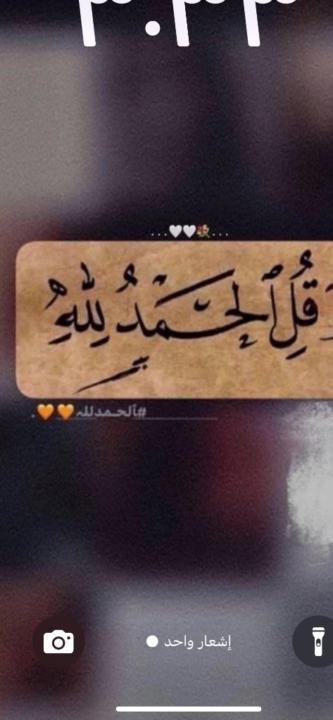 ...🤍🤍💐...
قُلِ الْحَمْدُ لِلَّهِ
#الحمدلله 🧡🧡.
إشعار واحد